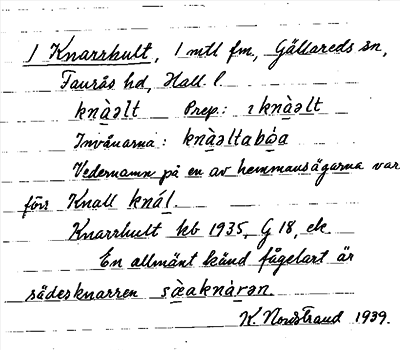 1 Knarrhult, 1 mtl fm, Gällareds sn,
Faurås hd, Hall. l.
knàəlt Prep.: ı knàəlt
Invånarna: knàəltabòa
Vedernamn på en av hemmansägarna var
förr Knall knál.
Knarrhult kb 1935, G 18, ek
En allmänt känd fågelart är
sädesknarren sæ̀aknàrən.
K. Nordstrand 1939.